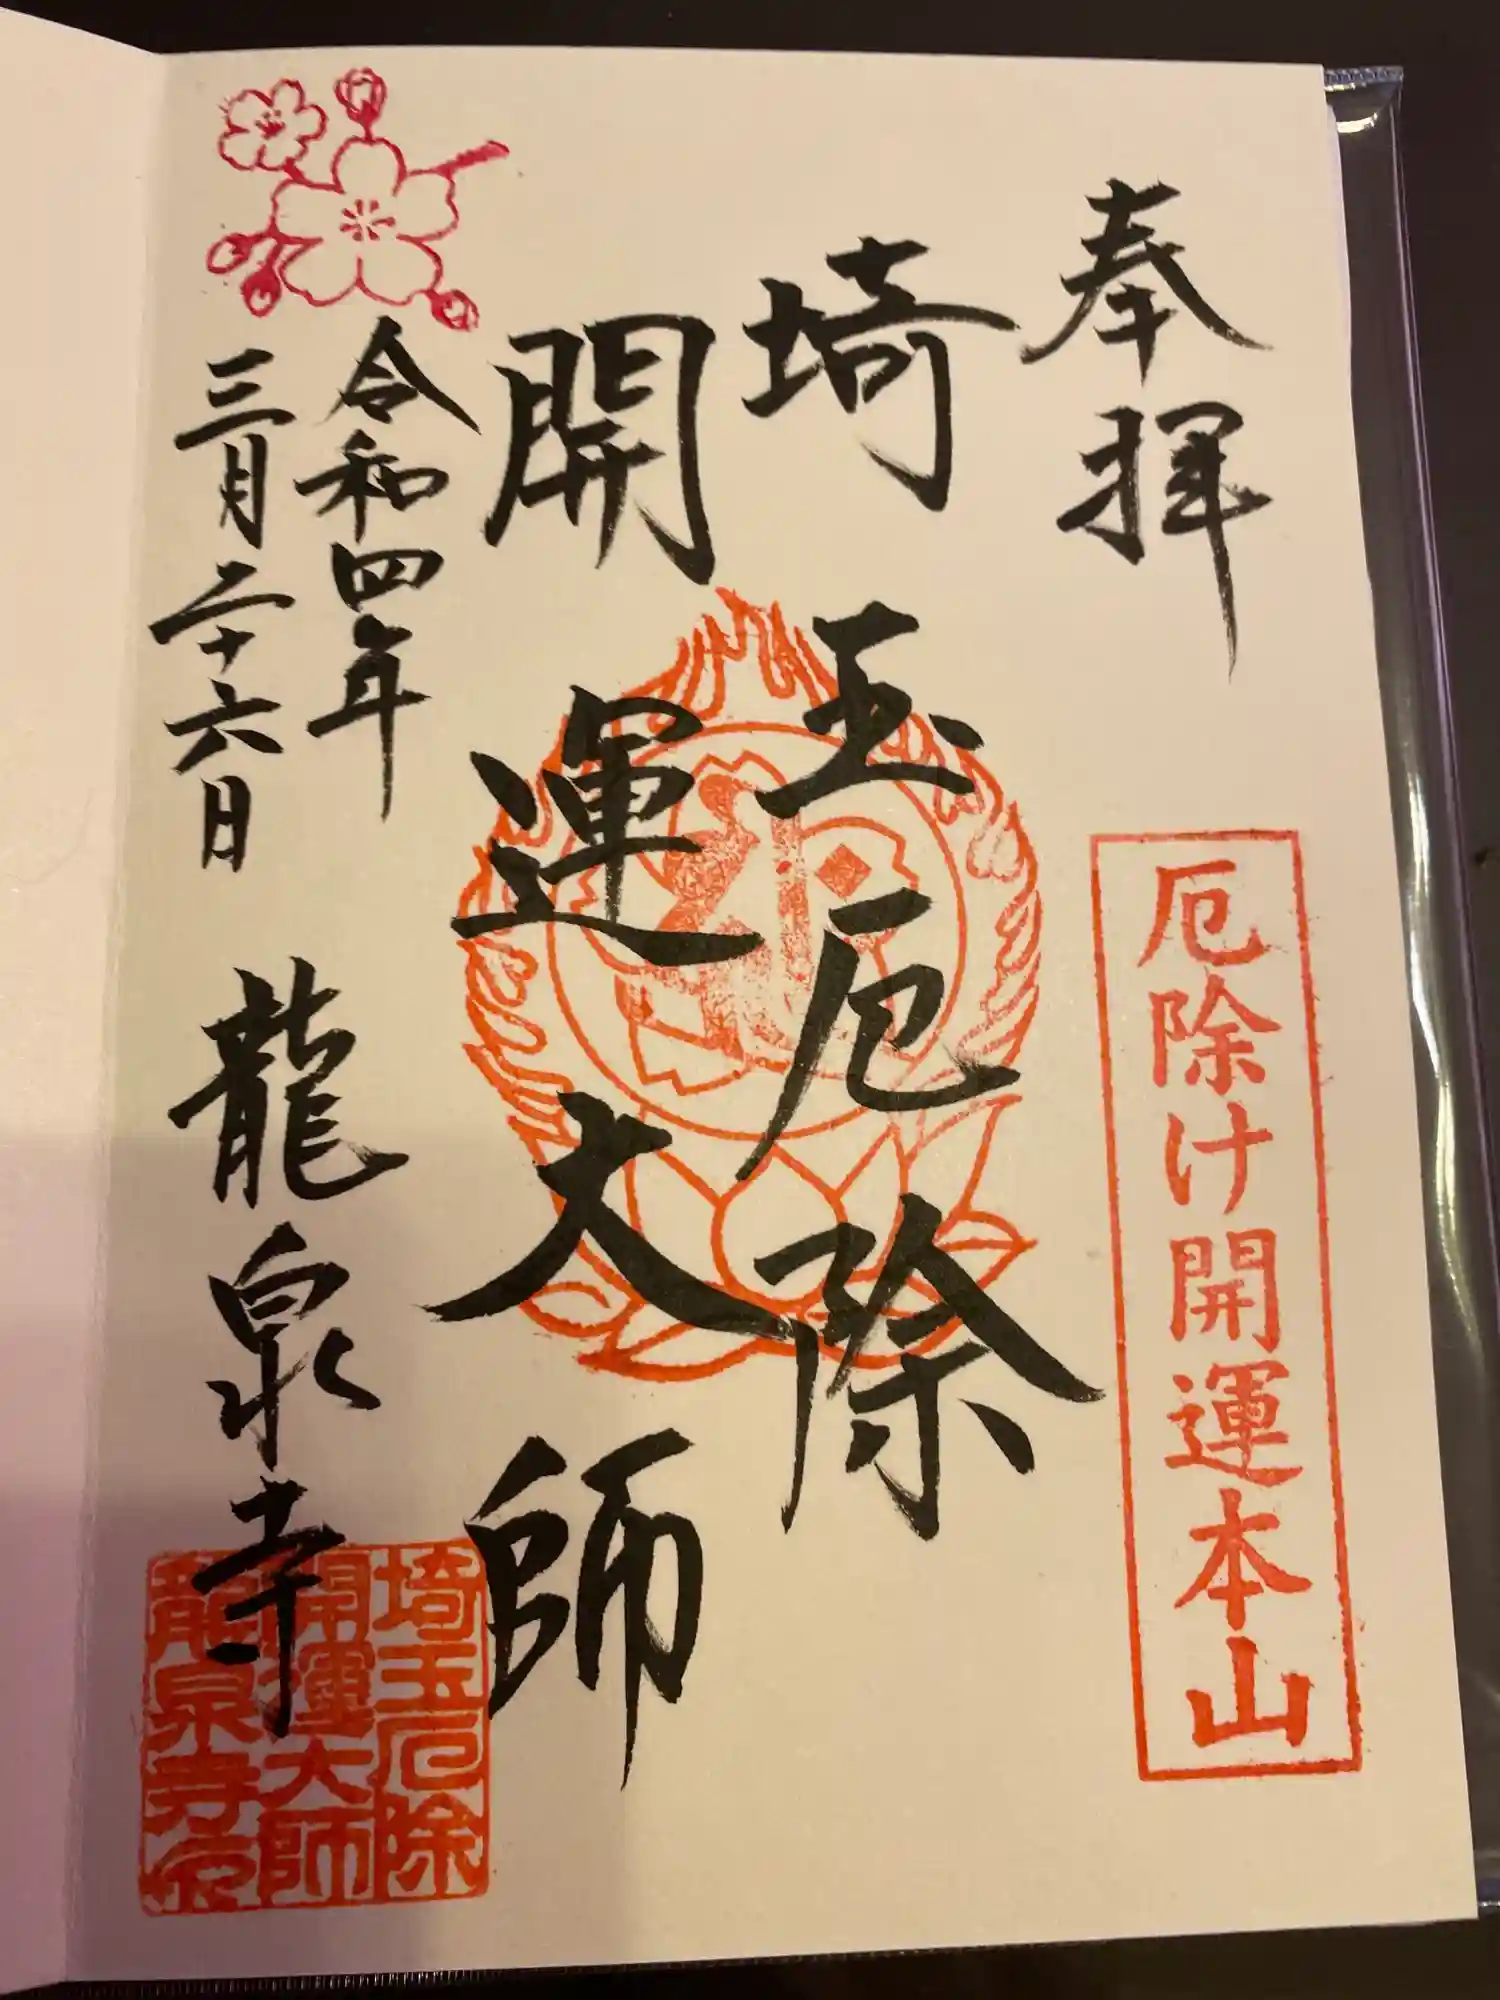 奉拝
厄除け開運本山
埼玉厄除
開運大師
令和四年
三月二十六日
龍泉寺
埼玉厄除
開運大師
龍泉寺印